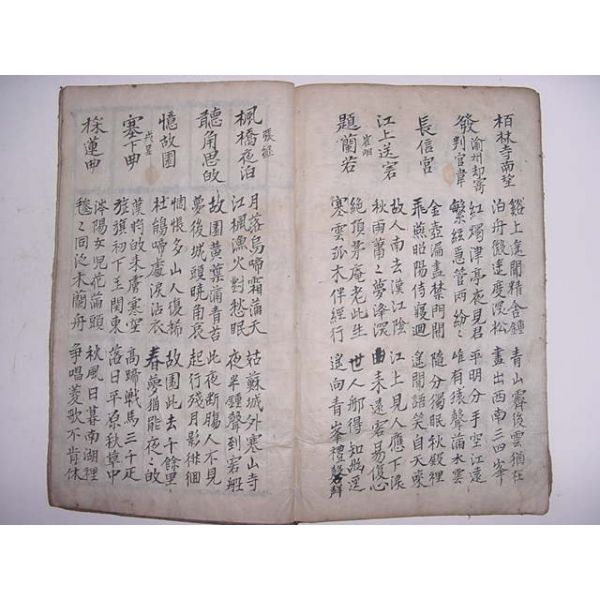 栢林寺南望
谿上遙聞精舍鍾
泊舟微逕度深松
青山霽後雲猶在
畫出西南三四峯
發渝州却寄
判官韋
紅燭津亭夜見君
繁絃急管兩紛々
平明分手空江遠
唯有猿聲滿水雲
長信宮
金壺漏盡禁門開
飛燕昭陽侍寢迴
隨分獨眠秋殿裡
遙聞語笑自天來
江上送客
崔峒
故人南去漢江陰
秋雨蕭々夢澤深
江上見人應下淚
由來遠客易傷心
題蘭若
絕頂茅庵老此生
寒雲孤木伴經行
世人那得知幽逕
遙向青峯禮磬
楓橋夜泊
張繼
月落烏啼霜滿天
江楓漁火對愁眠
姑蘇城外寒山寺
夜半鍾聲到客船
聽角思故
故園黃葉滿青苔
夢後城頭曉角哀
此夜斷膓人不見
起行殘月影徘徊
憶故園
惆悵多山人復稀
杜鵑啼處淚沾衣
故園此去千餘里
春夢猶能夜々故
塞下曲
戎昱
漢將故來虜塞空
旌旗初下玉關東
高蹄戰馬三千疋
落日平原秋草中
採蓮曲
涔陽女兒花滿頭
毵々同泛木蘭舟
秋風日暮南湖裡
爭唱菱歌不肯休